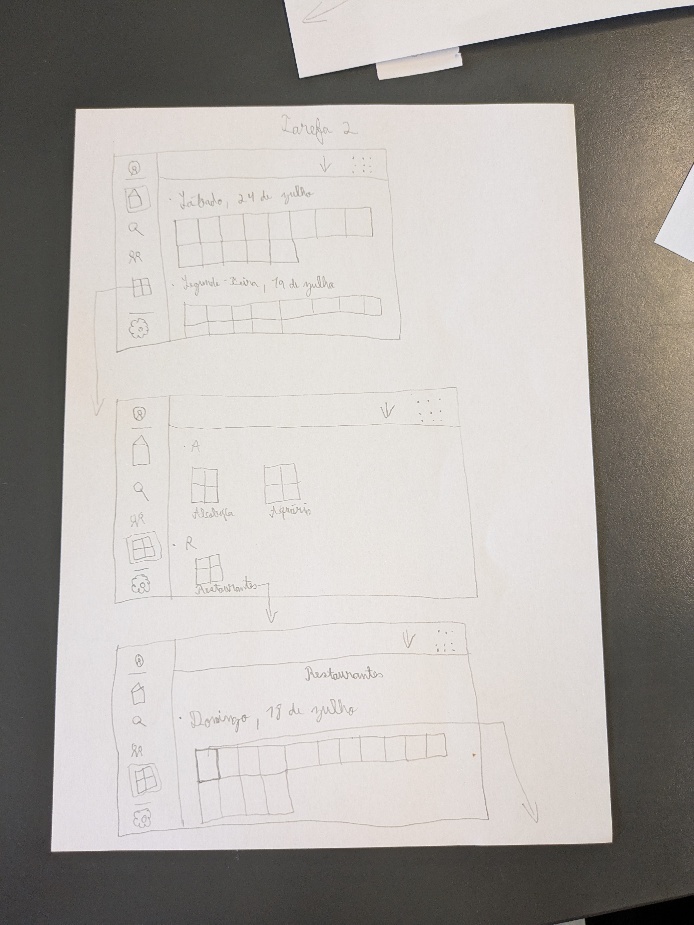 Tarefa 2
Sábado, 24 de julho
Segunda-Feira, 19 de julho
A
Alcobaça
Aquário
R
Restaurantes
Restaurantes
Domingo, 18 de julho